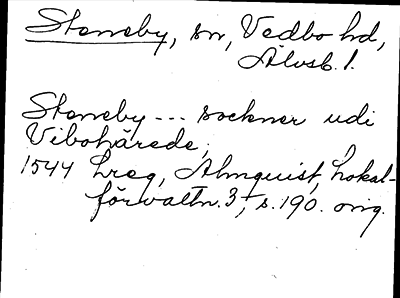 Steneby, sn, Vedbo hd,
Älvsb. l.
Steneby --- sockner udi
Vibohärede,
1544 Lreg, Almquist, Lokal-
förvaltn. 3, s. 190. orig.